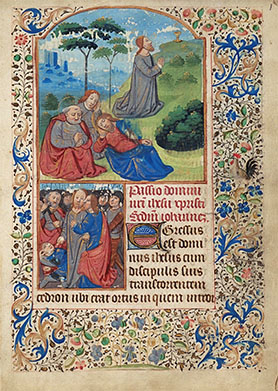 Passio domini
nri ihesu xpristi
Scdm iohannez
Egressus
est domi
nus ihesus cum
discipulis suis
transtorrentem
cedron ubi erat ortus in quem introi